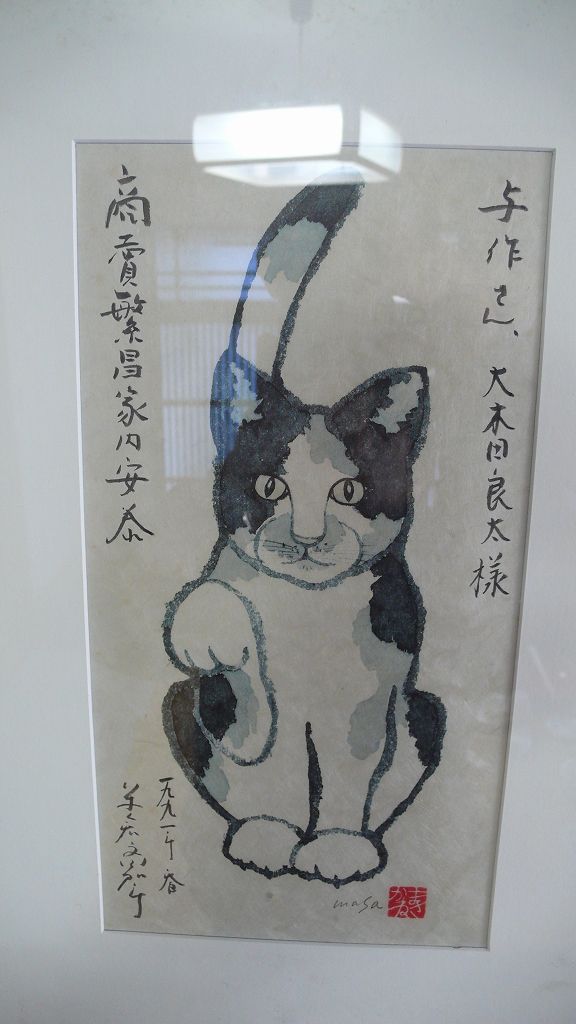 与作さん、大木田良太様
商賣繁昌家内安泰
一九九一年春
masa